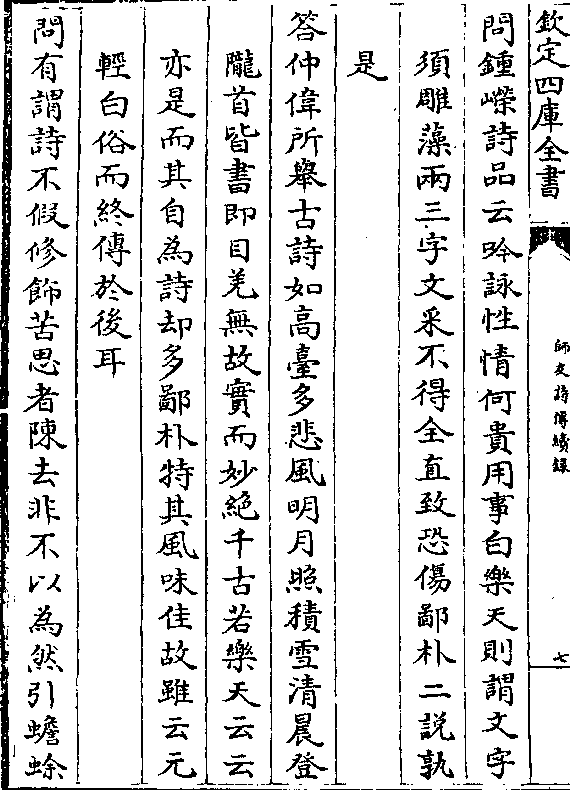 欽定四庫全書
師友詩傳續録
七
問鍾嶸詩品云吟詠性情何貴用事白樂天則謂文字
須雕藻兩三字文采不得全直致恐傷鄙朴二說孰
是
答仲偉所舉古詩如高臺多悲風明月照積雪清晨登
隴首皆書即目羌無故實而妙絶千古若樂天云云
亦是而其自為詩却多鄙朴特其風味佳故雖云元
輕白俗而終傳於後耳
問有謂詩不假修飾苦思者陳去非不以為然引蟾蜍